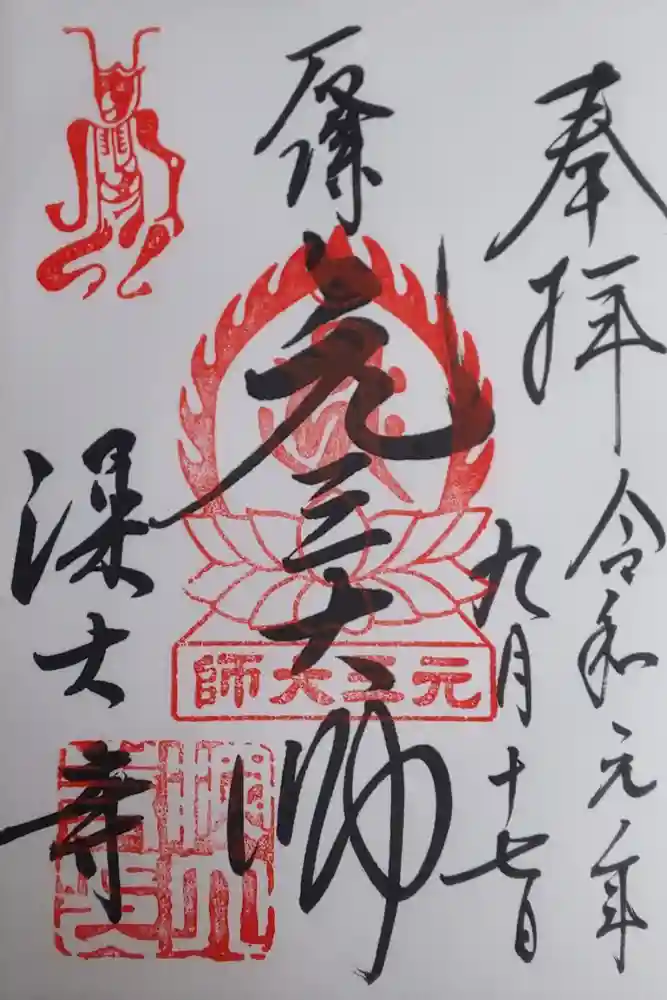 奉拝 令和元年
九月十七日
元三大師
元三大師
深大寺